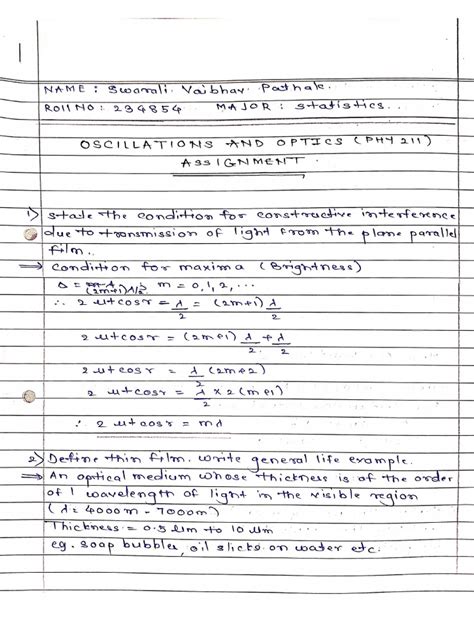 NAME : Swarali Vaibhav Pathak.
Roll NO : 234854 MAJOR : Statistics.
OSCILLATIONS AND OPTICS (PHY 211)
ASSIGNMENT.
1) State the condition for constructive interference
due to transmission of light from the plane parallel
film.
⇒ Condition for maxima (Brightness)
Δ = (2m+1)λ/2 m = 0, 1, 2, ...
∴ 2 μt cos r ± λ/2 = (2m+1) λ/2
2 μt cos r = (2m+1) λ/2 + λ/2
2 μt cos r = λ/2 (2m+2)
2 μt cos r = λ/2 × 2(m+1)
∴ 2 μt cos r = mλ
2) Define thin film. Write general life example.
⇒ An optical medium whose thickness is of the order
of 1 wavelength of light in the visible region
(λ = 4000m - 7000m)
Thickness = 0.5 μm to 10 μm
eg. soap bubbles, oil slicks on water etc.